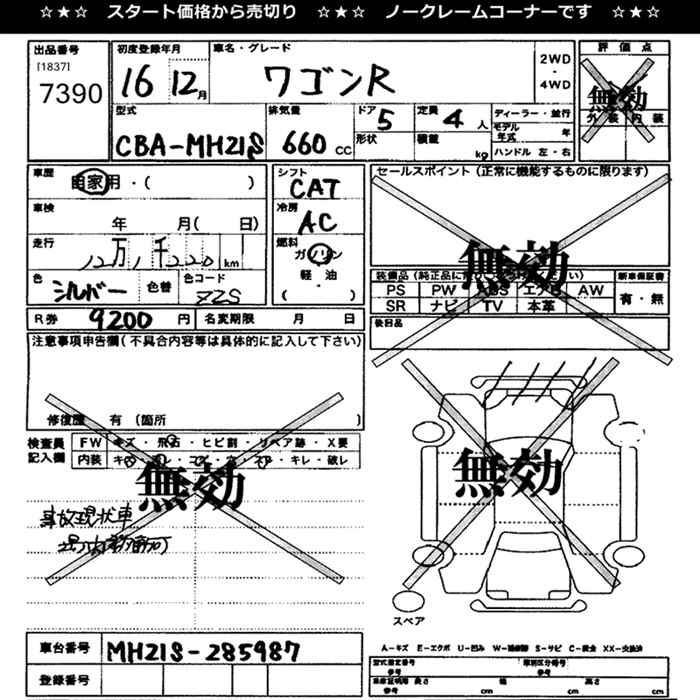 ☆★☆ スタート価格から売切り ☆★☆ ノークレームコーナーです ☆★☆
出品番号
[1837]
7390
初度登録年月
16 12月
車名・グレード
ワゴンR
2WD
・
4WD
評価点
無効
外装 内装
型式
CBA-MH21S
排気量
660 CC
ドア 5
形状
定員 4 人
積載 kg
ディーラー・並行
モデル年式 年
ハンドル 左・右
車歴
自家用・( )
車検
年 月( 日)
走行
12万1千220 km
色
シルバー
色替
色コード
Z2S
シフト
CAT
冷房
AC
燃料
ガソリン
軽・油
( )
セールスポイント(正常に機能するものに限ります)
無効
PS PW AW
SR ナビ TV 本革
新車保証書
有・無
後日品
R券 9200 円
名変期限 月 日
注意事項申告欄(不具合内容等は具体的に記入して下さい)
修復歴 有 (箇所 )
検査員
記入欄
FW キズ・飛石・ヒビ割・リペア跡・X要
内装 キレ・破レ
無効
事故現状車
無効
スペア
車台番号 MH21S-285987
登録番号
A-キズ E-エクボ U-凹ミ S-サビ C-腐食
型式指定番号
類別区分番号
参考 長さ cm
幅 cm
高さ cm